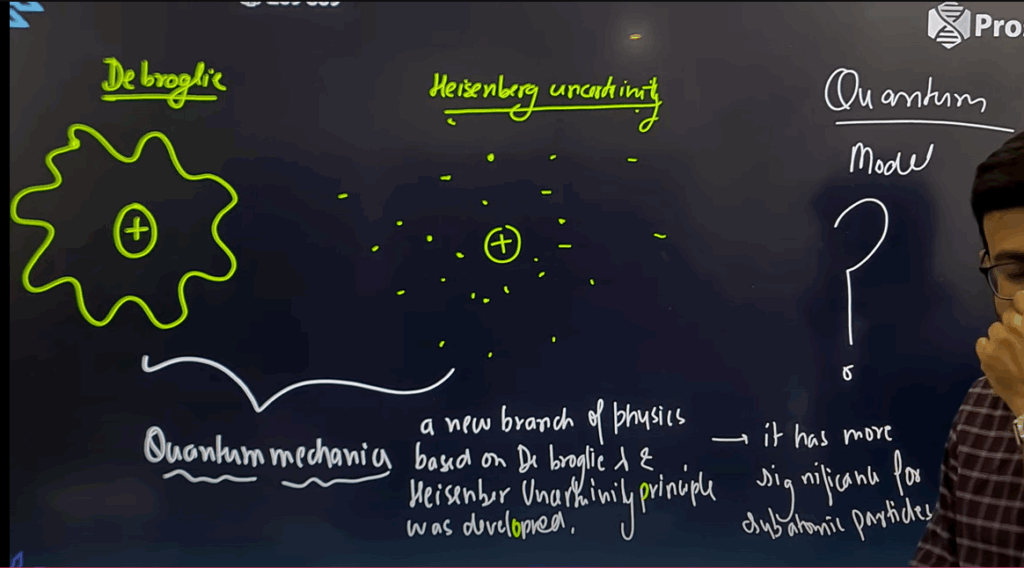 Pro
De broglie
Heisenberg uncertinity
Quantum
Model
+
+
?
Quantum mechanics
a new branch of physics
based on De broglie λ &
Heisenber Uncertinity principle
was developed.
→ it has more
significant for
subatomic particles